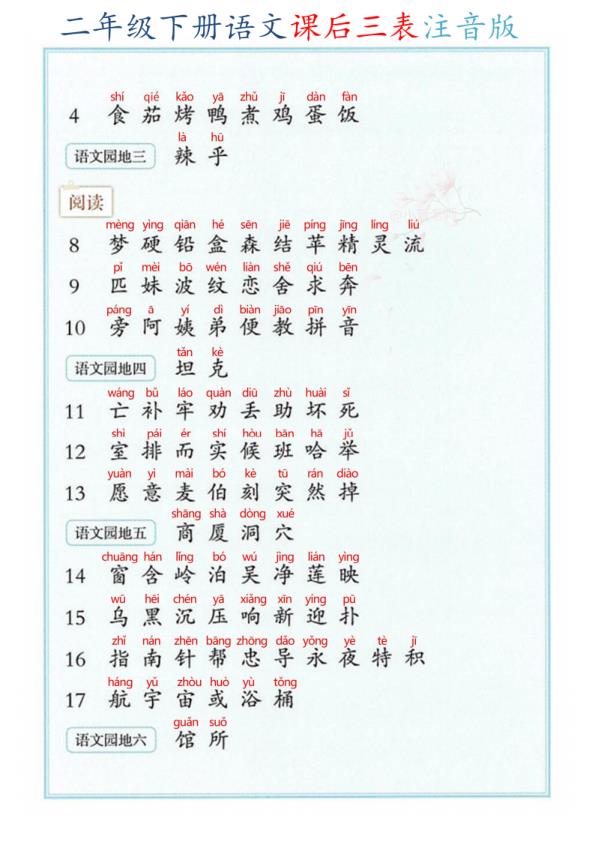 二年级下册语文课后三表注音版
shí qié kǎo yā zhǔ jī dàn fàn
4 食 茄 烤 鸭 煮 鸡 蛋 饭
là hū
语文园地三 辣 乎
阅读
mèng yìng qiān hé sēn jiē píng jīng líng liú
8 梦 硬 铅 盒 森 结 苹 精 灵 流
pǐ mèi bō wén liàn shě qiú bēn
9 匹 妹 波 纹 恋 舍 求 奔
páng ā yí dì biàn jiāo pīn yīn
10 旁 阿 姨 弟 便 教 拼 音
tǎn kè
语文园地四 坦 克
wáng bǔ láo quàn diū zhù huài sǐ
11 亡 补 牢 劝 丢 助 坏 死
shì pái ér shí hòu bān hā jǔ
12 室 排 而 实 候 班 哈 举
yuàn yì mài bó kè tū rán diào
13 愿 意 麦 伯 刻 突 然 掉
shāng shà dòng xué
语文园地五 商 厦 洞 穴
chuāng hán lǐng bó wú jìng lián yìng
14 窗 含 岭 泊 吴 净 莲 映
wū hēi chén yā xiǎng xīn yíng pū
15 乌 黑 沉 压 响 新 迎 扑
zhǐ nán zhēn bāng zhōng dǎo yǒng yè tè jī
16 指 南 针 帮 忠 导 永 夜 特 积
háng yǔ zhòu huò yù tǒng
17 航 宇 宙 或 浴 桶
guǎn suǒ
语文园地六 馆 所